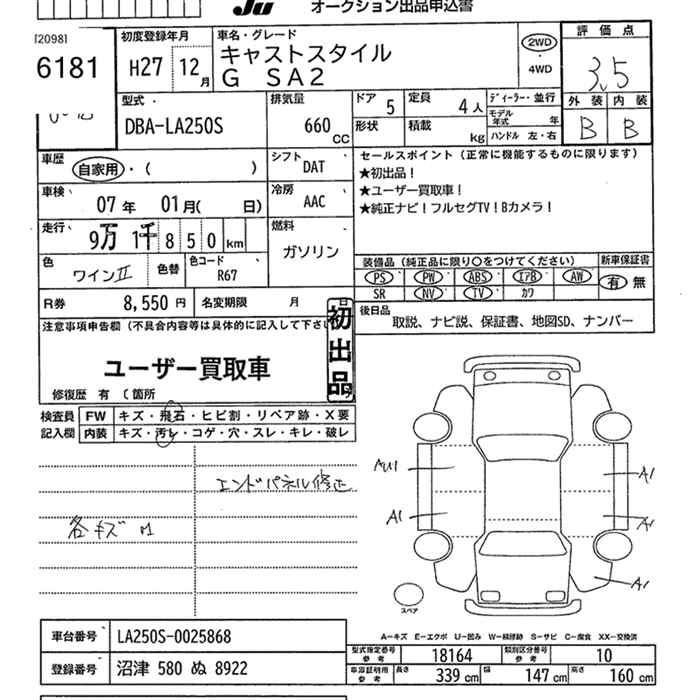 Ju オークション出品申込書
[2098]
6181
初度登録年月
H27 12月
車名・グレード
キャストスタイル
G SA2
2WD
・
4WD
評価点
3.5
外装 内装
B B
型式
DBA-LA250S
排気量
660 CC
ドア 5
定員 4人
形状
積載 kg
ディーラー・並行
モデル年式 年
ハンドル 左・右
車歴
自家用・( )
シフト DAT
車検
07年 01月( 日)
冷房 AAC
走行
9万 1千 8 5 0 km
燃料
ガソリン
色
ワインII
色替
色コード
R67
セールスポイント(正常に機能するものに限ります)
★初出品!
★ユーザー買取車!
★純正ナビ!フルセグTV!Bカメラ!
装備品(純正品に限り○をつけてください)
新車保証書
PS PW ABS エアB AW
有 無
SR NV TV カワ
R券 8,550円
名変期限 月 日
後日品
取説、ナビ説、保証書、地図SD、ナンバー
注意事項申告欄(不具合内容等は具体的に記入して下さ
初出品
ユーザー買取車
修復歴 有 〔箇所
検査員 FW キズ・飛石・ヒビ割・リペア跡・X要
記入欄 内装 キズ・汚レ・コゲ・穴・スレ・キレ・破レ
エンドパネル修正
各キズ
AU1
A1
A1
A1
A1
スペア
A―キズ E―エクボ U―凹み W―補修跡 S―サビ C―腐食 XX―交換済
車台番号 LA250S-0025868
登録番号 沼津 580 ぬ 8922
型式指定番号 参考 18164
類別区分番号 参考 10
車庫証明用 参考 長さ 339 cm 幅 147 cm 高さ 160 cm